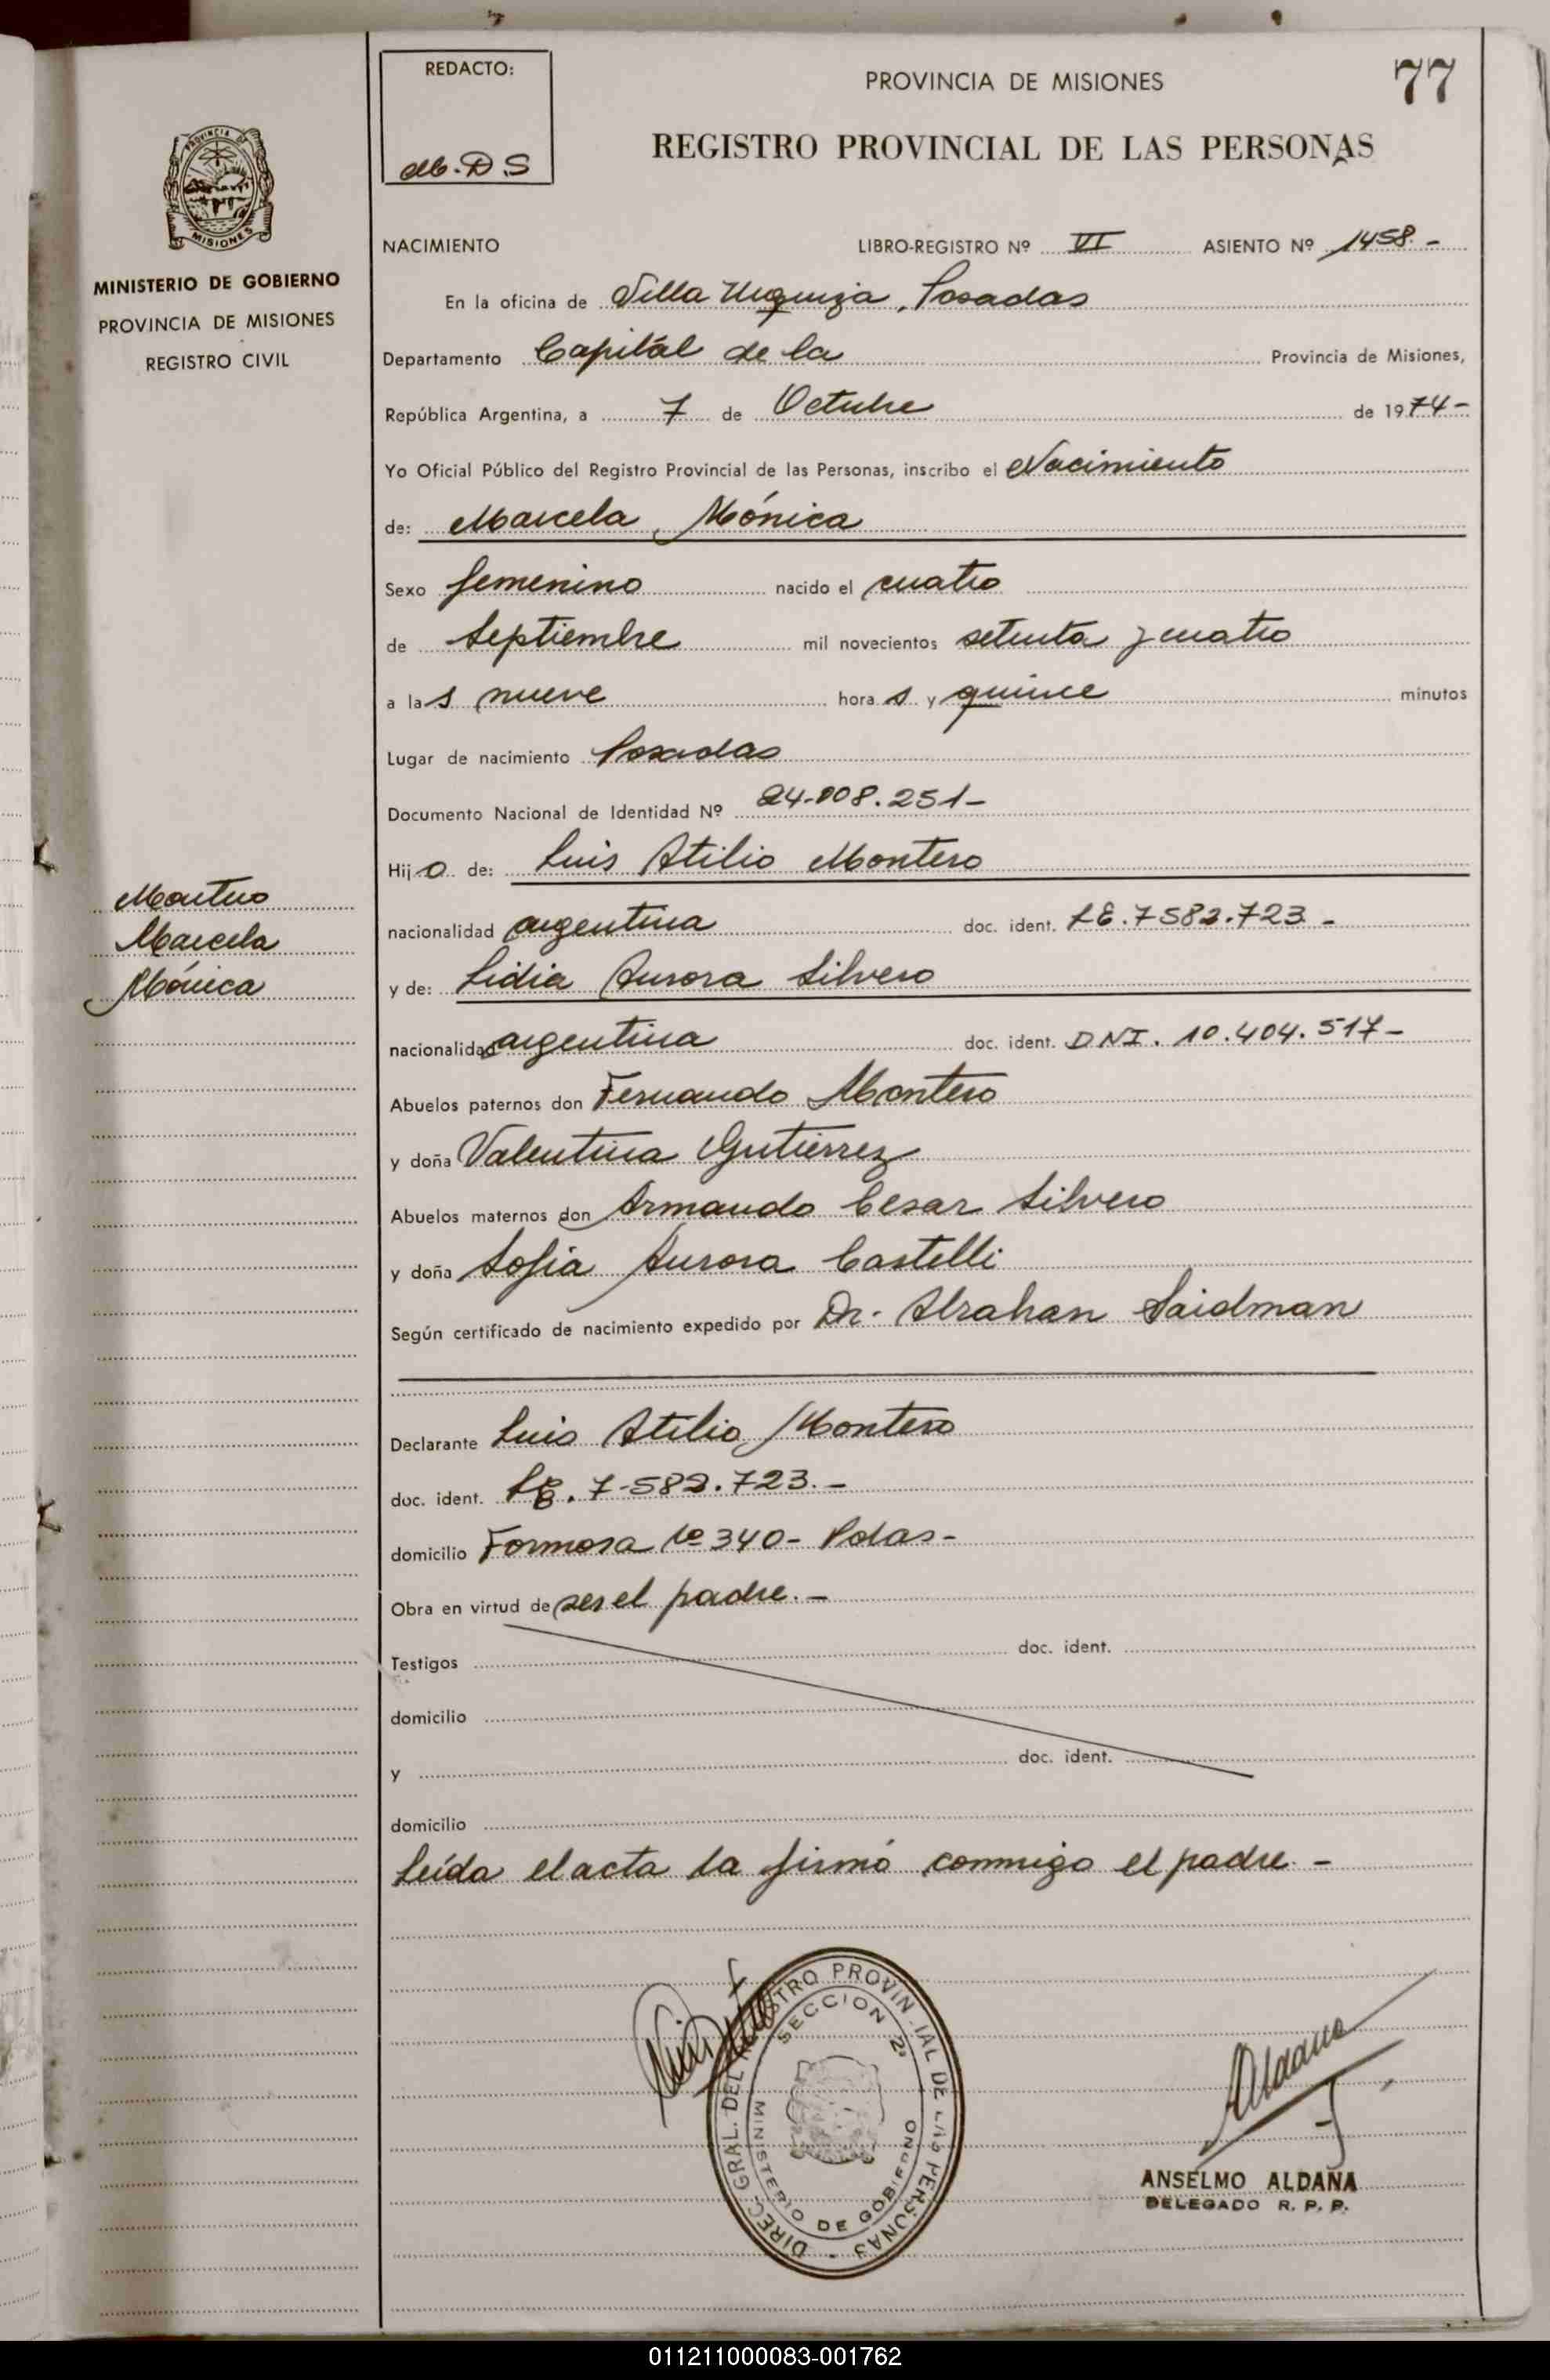 REDACTO:
M.D.S
PROVINCIA DE MISIONES
77
REGISTRO PROVINCIAL DE LAS PERSONAS
PROVINCIA DE
MISIONES
MINISTERIO DE GOBIERNO
PROVINCIA DE MISIONES
REGISTRO CIVIL
NACIMIENTO LIBRO-REGISTRO Nº VI ASIENTO Nº 1458.-
En la oficina de Villa Urquiza, Posadas
Departamento Capitál de la Provincia de Misiones,
República Argentina, a 7 de Octubre de 1974-
Yo Oficial Público del Registro Provincial de las Personas, inscribo el Nacimiento
de: Marcela Mónica
Sexo femenino nacido el cuatro
de Septiembre mil novecientos setenta y cuatro
a las nueve horas y quince minutos
Lugar de nacimiento Posadas
Documento Nacional de Identidad Nº 24.008.251-
Hijo de: Luis Atilio Montero
Montero
Marcela
Mónica
nacionalidad argentina doc. ident. LE.7582.723.-
y de: Lidia Aurora Silvero
nacionalidad argentina doc. ident. DNI. 10.404.517-
Abuelos paternos don Fernando Montero
y doña Valentina Gutierrez
Abuelos maternos don Armando Cesar Silvero
y doña Sofia Aurora Castelli
Según certificado de nacimiento expedido por Dr. Abrahan Saidman
Declarante Luis Atilio Montero
doc. ident. LE. 7-582.723.-
domicilio Formosa Nº 340- Pdas-
Obra en virtud de ser el padre.-
Testigos doc. ident.
domicilio
y doc. ident.
domicilio
Leída el acta la firmó conmigo el padre.-
DIREC. GRAL. DEL REGISTRO PROVINCIAL DE LAS PERSONAS
SECCION 2ª
MINISTERIO DE GOBIERNO
Aldana
ANSELMO ALDAÑA
DELEGADO R. P. P.
011211000083-001762